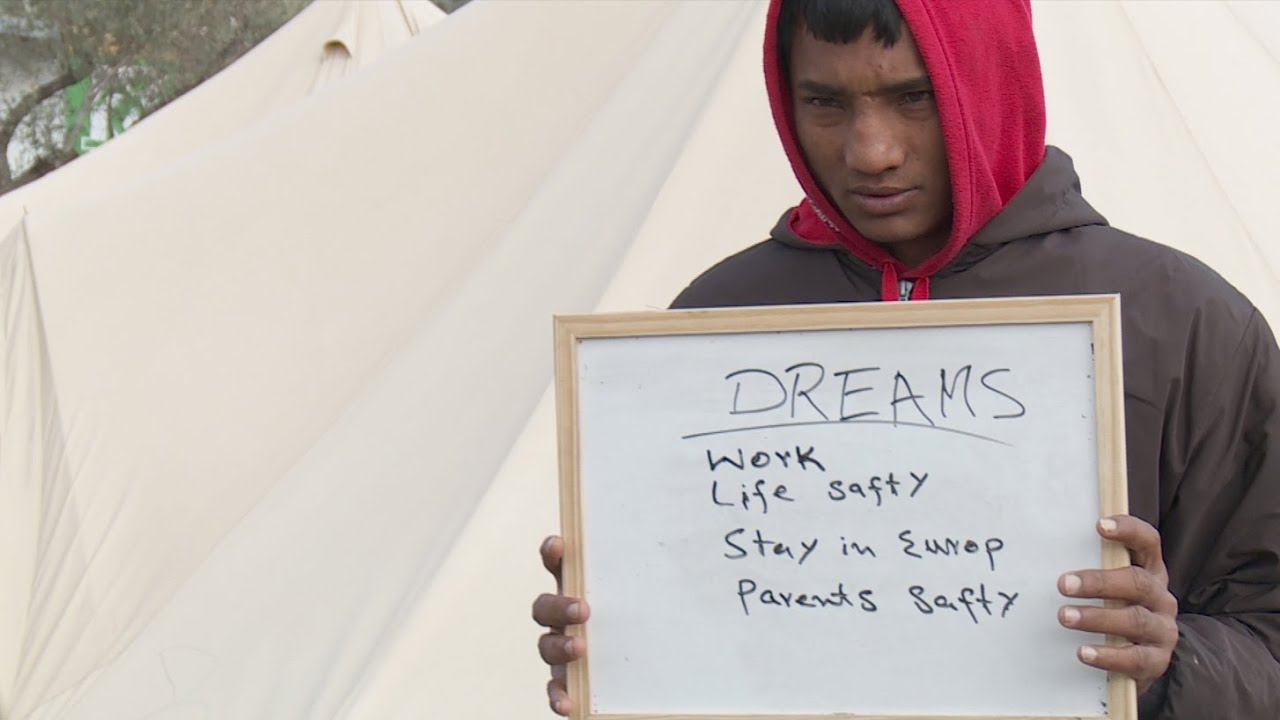 DREAMS
Work
Life safty
Stay in Europ
Parents safty